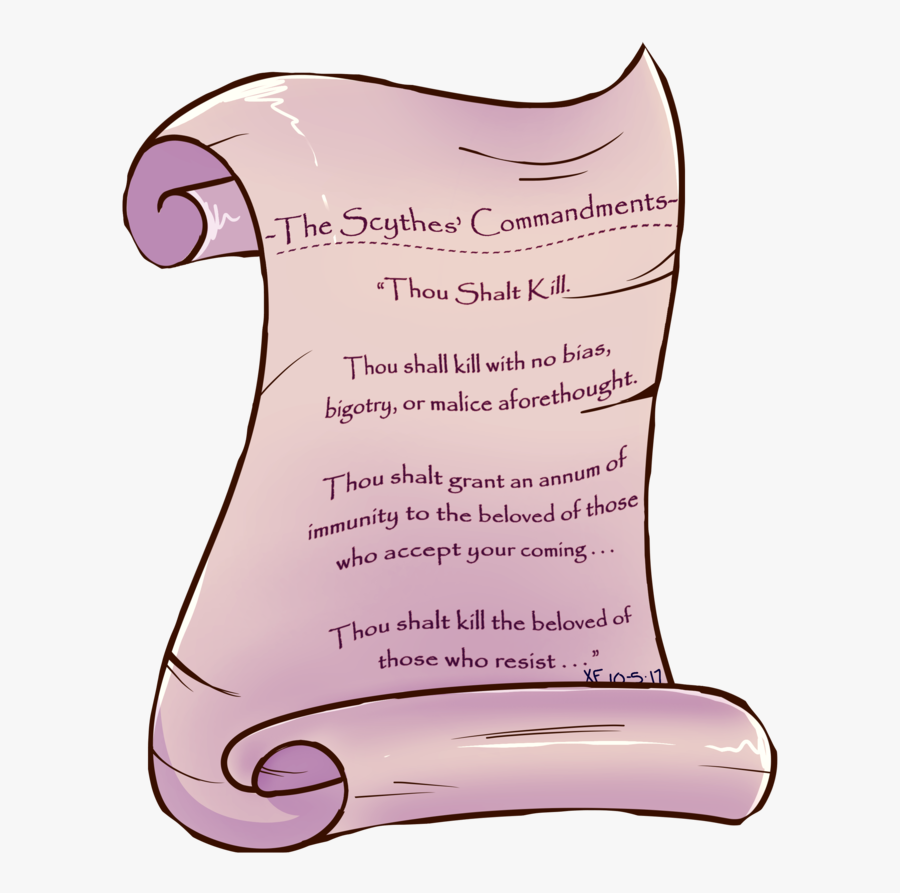 -The Scythes' Commandments-
“Thou Shalt Kill.
Thou shall kill with no bias,
bigotry, or malice aforethought.
Thou shalt grant an annum of
immunity to the beloved of those
who accept your coming . . .
Thou shalt kill the beloved of
those who resist . . .”
XF 10-5-17